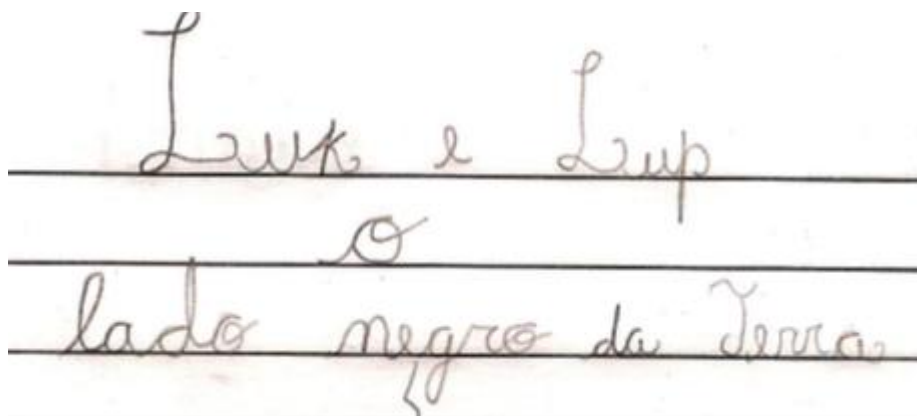 Luk e Lup
O
lado negro da Terra